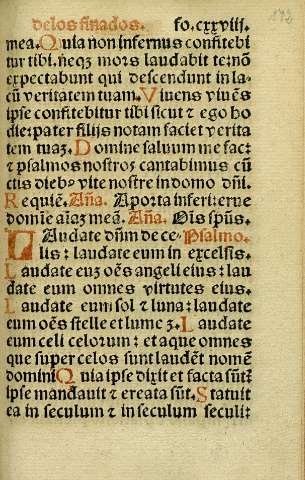 de los finados. fo. cxxviij. 192
mea. Quia non infernus confitebi
tur tibi. neqȝ mors laudabit te: nõ
expectabunt qui descendunt in la-
cũ veritatem tuam. Viuens viuẽs
ipse confitebitur tibi sicut ⁊ ego ho
die: pater filijs notam faciet verita
tem tuaȝ. Domine saluum me fac:
⁊ psalmos nostros cantabimus cũ
ctis diebꝰ vite nostre in domo dñi.
Requiẽ. Aña. A porta inferi: erue
domie aĩaȝ meã. Aña. Oĩs spũs.
Laudate dñm de ce- Psalmo.
lis: laudate eum in excelsis.
Laudate euȝ oẽs angeli eius: lau
date eum omnes virtutes eius.
Laudate eum sol ⁊ luna: laudate
eum oẽs stelle et lumẽ ȝ. Laudate
eum celi celorum: et aque omnes
que super celos sunt laudẽt nomẽ
domini Quia ipse dixit et facta sũt:
ipse mandauit ⁊ creata sũt. Statuit
ea in seculum ⁊ in seculum seculi: